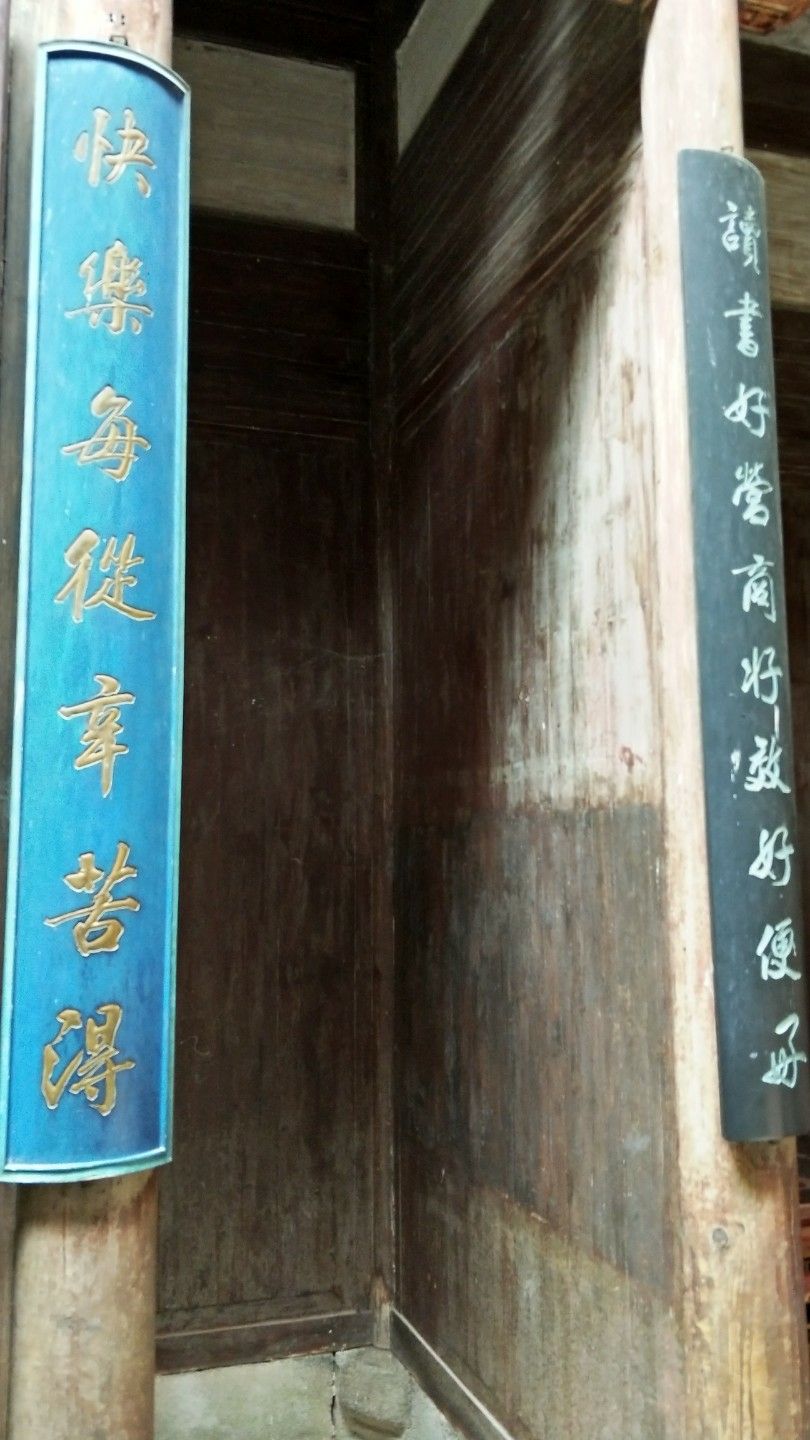 讀書好營商好效好便好
快樂每從辛苦得